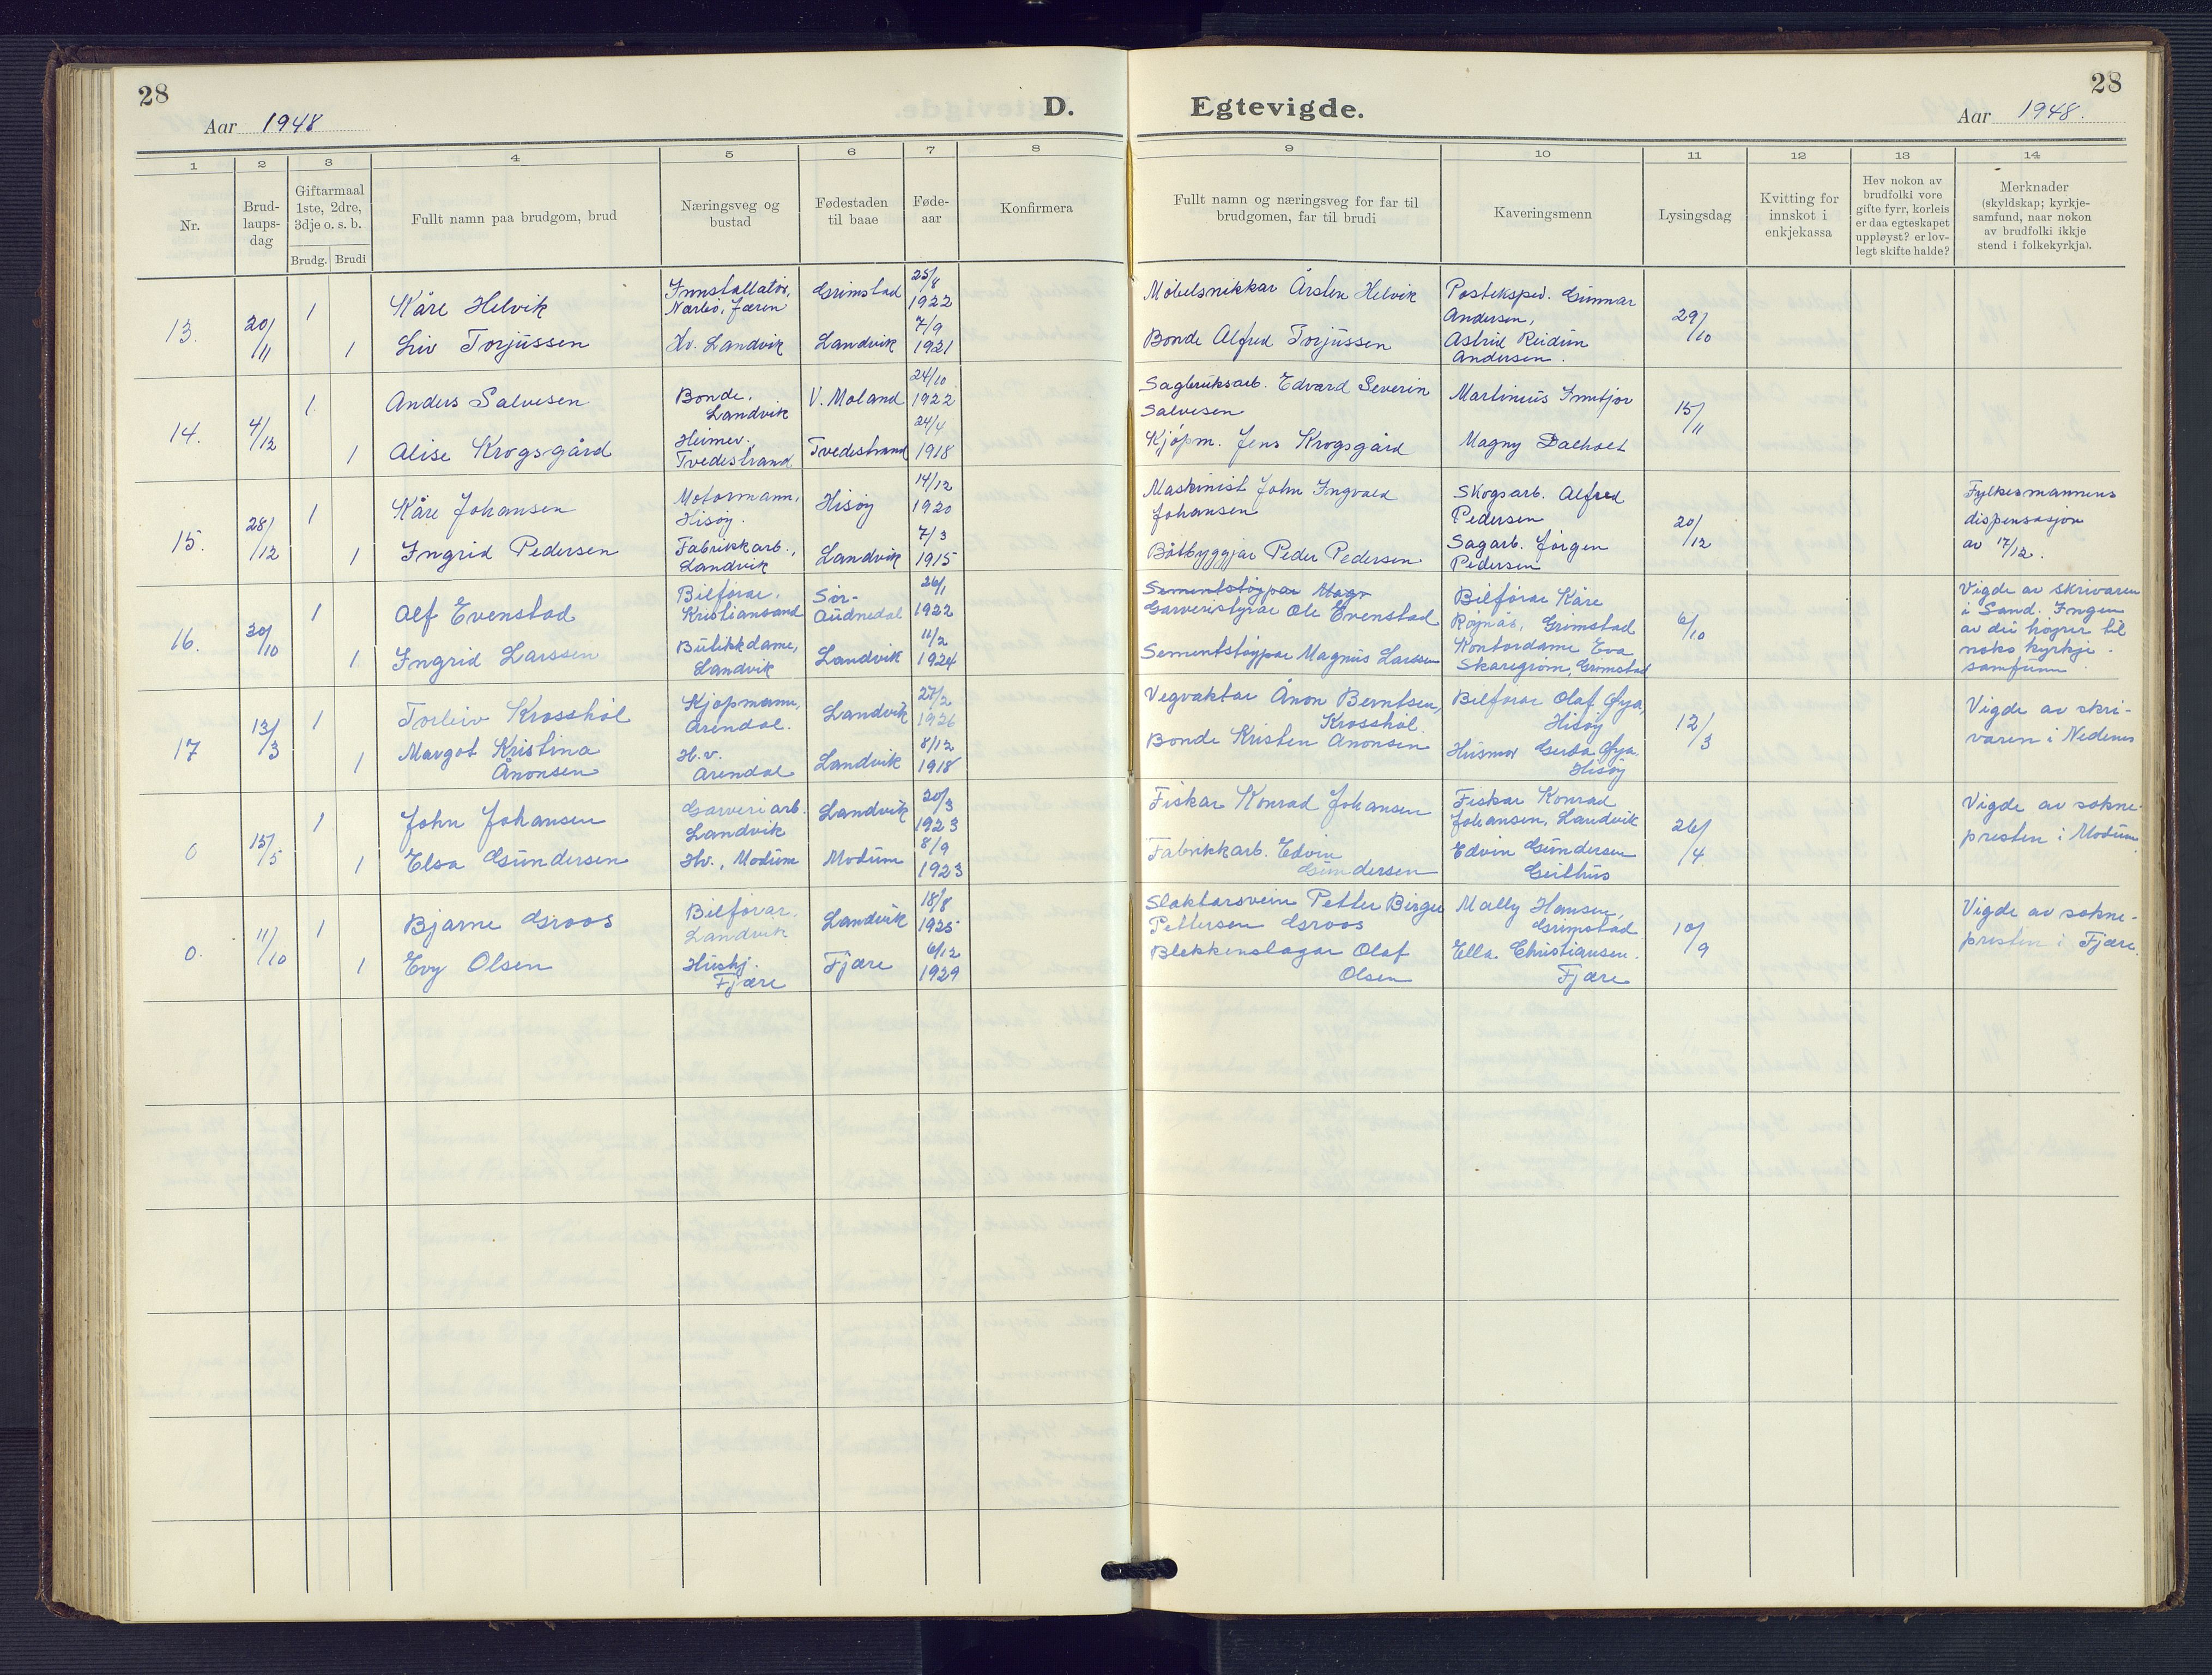 28
Aar 1948
D.
Egtevigde.
28
Aar 1948.
1 2 3 4 5 6 7 8 9 10 11 12 13 14
Nr.
Brud-
laups-
dag
Giftarmaal
1ste, 2dre,
3dje o. s. b.
Brudg. Brudi
Fullt namn paa brudgom, brud
Næringsveg og
bustad
Fødestaden
til baae
Føde-
aar
Konfirmera
Fullt namn og næringsveg for far til
brudgomen, far til brudi
Kaveringsmenn
Lysingsdag
Kvitting for
innskot i
enkjekassa
Hev nokon av
brudfolki vore
gifte fyrr, korleis
er daa egteskapet
uppløyst? er lov-
legt skifte halde?
Merknader
(skyldskap; kyrkje-
samfund, naar nokon
av brudfolki ikkje
stend i folkekyrkja).
13.
20/11
1
Kåre Helvik
Innstallatør,
Nærbø, Jæren
Grimstad
25/8
1922
Møbelsnikkar Årsten Helvik
Postekspd. Gunnar
Andersen,
29/10
1
Liv Torjussen
Hv. Landvik
Landvik
7/9
1921
Bonde Alfred Torjussen
Astrid Reidun
Andersen.
14.
4/12
1
Anders Salvesen
Bonde,
Landvik
V. Moland
24/10
1922
Sagbruksarb. Edvard Severin
Salvesen
Martinius Inntjor
15/11
1
Alise Krogsgård
Heimev.,
Tvedestrand
Tvedestrand
24/4
1918
Kjøpm. Jens Krogsgård
Magny Dalholt
15.
28/12
1
Kåre Johansen
Motormann,
Hisøy.
Hisøy
14/12
1920
Maskinist John Ingvald
Johansen
Skogsarb. Alfred
Pedersen
20/12
Fylkesmannens
dispensasjon
av 17/12.
1
Ingrid Pedersen
Fabrikkarb.,
Landvik
Landvik
7/3
1915
Båtbyggjar Peder Pedersen
Sagarb. Jørgen
Pedersen
16.
30/10
1
Alf Evenstad
Bilførar,
Kristiansand
Sør-
Audnedal
26/1
1922
Sementstøypar Magn
Garveristyrar Ole Evenstad
Bilførar Kåre
Røynås, Grimstad
6/10
Vigde av skrivaren
i Sand. Ingen
av dei høyrer til
noko kyrkje-
samfunn
1
Ingrid Larssen
Butikkdame,
Landvik
Landvik
11/2
1924
Sementstøypar Magnus Larssen
Kontordame Eva
Skaregrøm, Grimstad
17
13/3
1
Torleiv Krosshøl
Kjøpmann,
Arendal.
Landvik
27/2
1926
Vegvaktar Ånon Berntsen,
Krosshøl.
Bilførar Olaf Øya,
Hisøy
12/3
Vigde av skri-
varen i Nedenes
1
Margot Kristina
Ånonsen
H.v.
Arendal
Landvik
8/12
1918
Bonde Kristen Ånonsen
Husmor Gerda Øya.
Hisøy
0
15/5
1
John Johansen
Garveriarb.
Landvik
Landvik
20/3
1923
Fiskar Konrad Johansen
Fiskar Konrad
Johansen, Landvik
26/4
Vigde av sokne-
presten i Modum
1
Elsa Gundersen
Hv., Modum
Modum
8/9
1923
Fabrikkarb. Edvin
Gundersen
Edvin Gundersen
Geithus
0.
11/10
1
Bjarne Groos
Bilførar.
Landvik
Landvik
18/8
1925
Slaktarsvein Petter Birger
Pettersen Groos
Mally Hansen,
Grimstad
10/9
Vigde av sokne-
presten i Fjære.
1
Evy Olsen
Hushj.
Fjære
Fjære
6/12
1929
Blekkenslagar Olaf
Olsen
Ella Christiansen.
Fjære